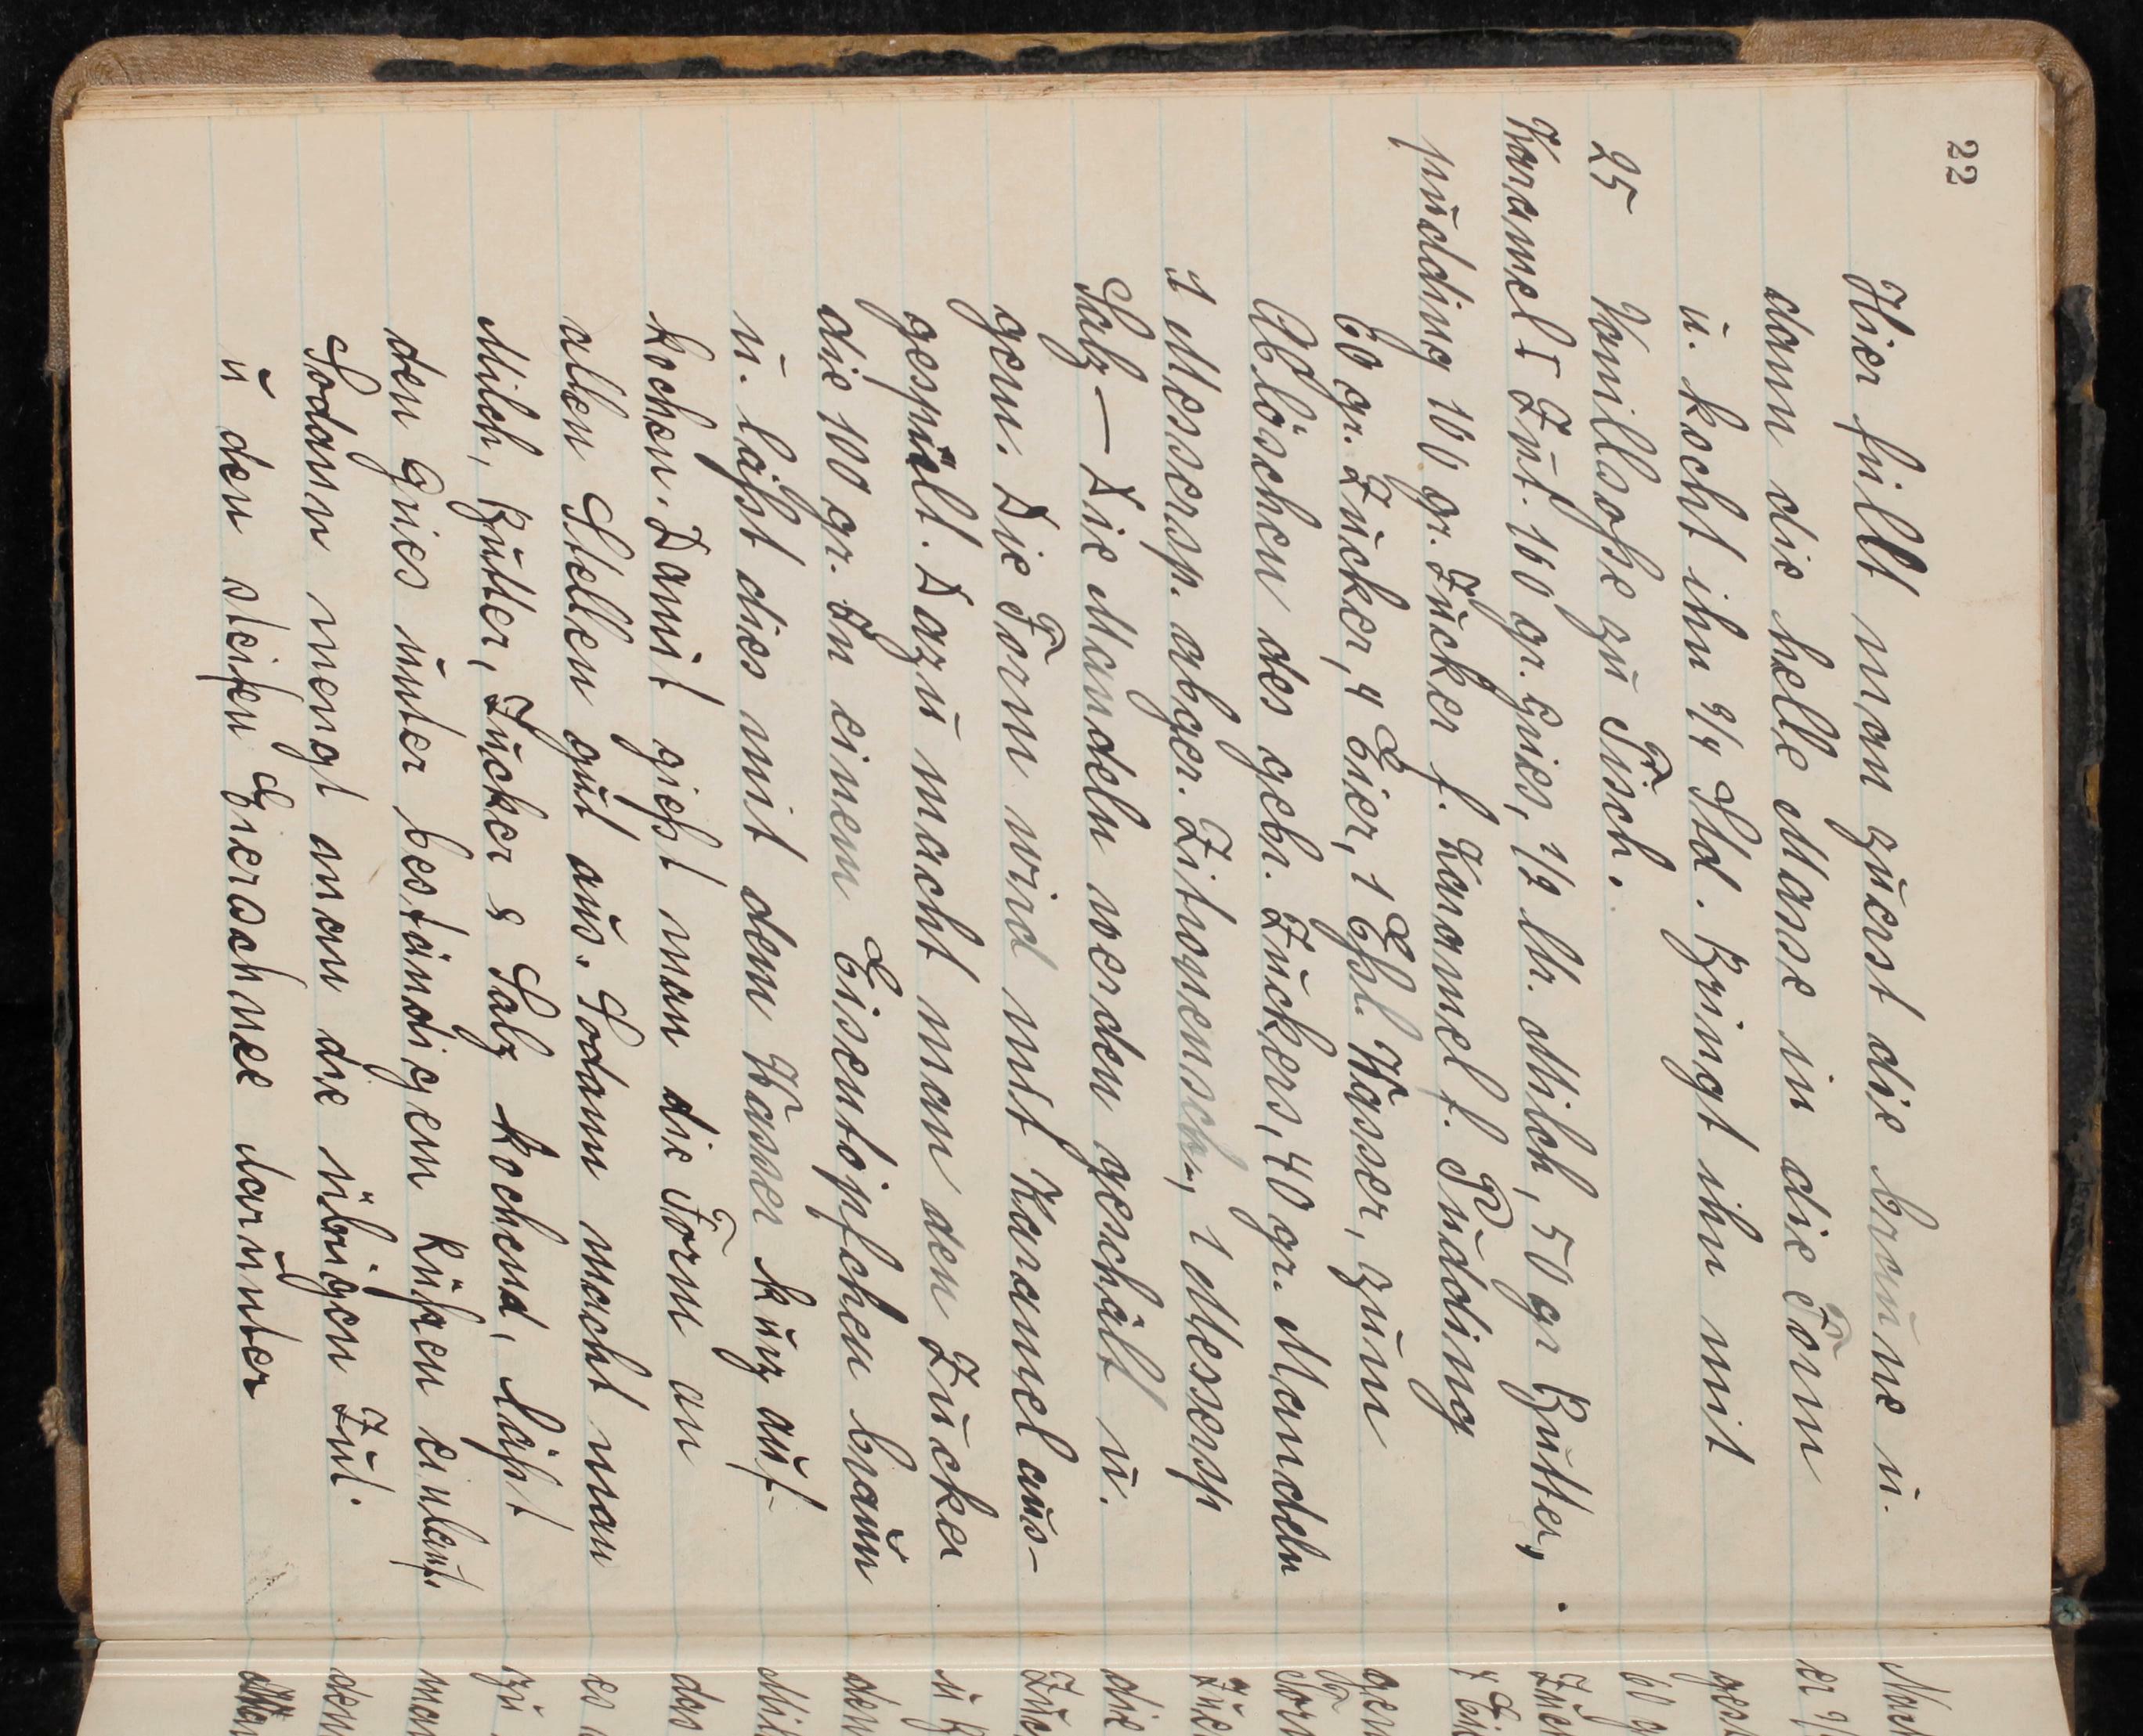 22
Hier füllt man zuerst die braune u.
dann die helle Masse in die Form
u. kocht ihn ¾ Std. Bringt ihn mit
25 Vanillsoße zu Tisch.
Karamel- Zut. 160 gr. Gries, ½ ltr. Milch, 50 gr Butter,
pudding 100 gr. Zucker f. Karamel f. Pudding
60 gr. Zucker, 4 Eier, 1 Eßl. Wasser, zum
Ablöschen des gebr. Zuckers, 40 gr. Mandeln
1 Messersp. abger. Zitronensch., 1 Messersp
Salz — Die Mandeln werden geschält u.
gem. Die Form wird mit Karamel aus-
gespült. Dazu macht man den Zucker
die 100 gr. In einem Eisentöpfchen braun
u. läßt dies mit dem Wasser kurz auf-
kochen. Damit gießt man die Form an
allen Stellen gut aus. Sodann macht man
Milch, Butter, Zucker & Salz kochend, läßt
den Gries unter beständigem Rühren einlauf.
Sodann mengt man die übrigen Zut.
u den steifen Eierschnee darunter